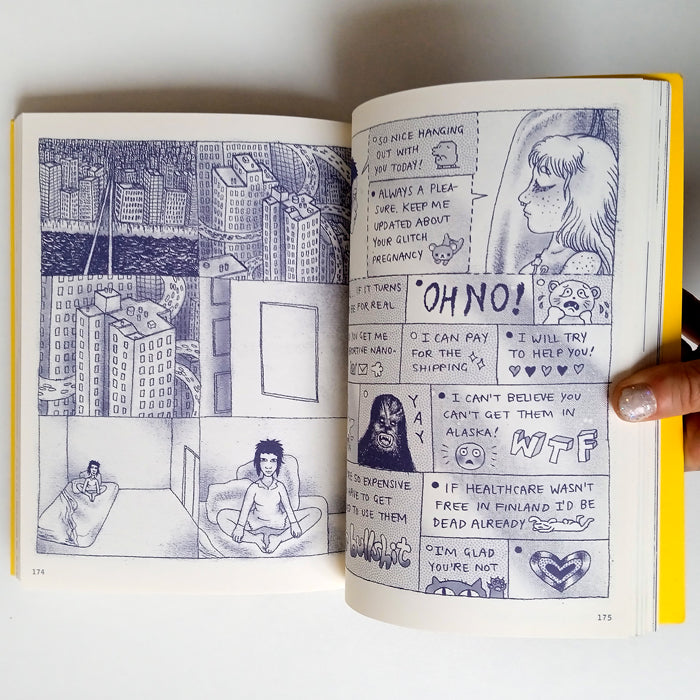 °SO NICE HANGING
OUT WITH
YOU TODAY!
• ALWAYS A PLEA-
SURE. KEEP ME
UPDATED ABOUT
YOUR GLITCH
PREGNANCY
IF IT TURNS
FOR REAL
•OH NO!
GET ME
NANO-
○ I CAN PAY
FOR THE
SHIPPING
• I WILL TRY
TO HELP YOU!
YAY
• I CAN'T BELIEVE YOU
CAN'T GET THEM IN
ALASKA!
WTF
SO EXPENSIVE
TO GET
TO USE THEM
bullshit
• IF HEALTHCARE WASN'T
FREE IN FINLAND I'D BE
DEAD ALREADY
○I'M GLAD
YOU'RE NOT
174
175